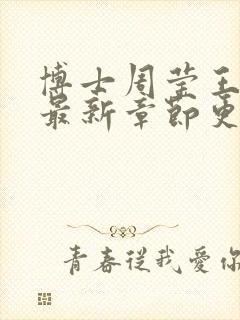 博士周莹王
最新章節更
青春從我愛你